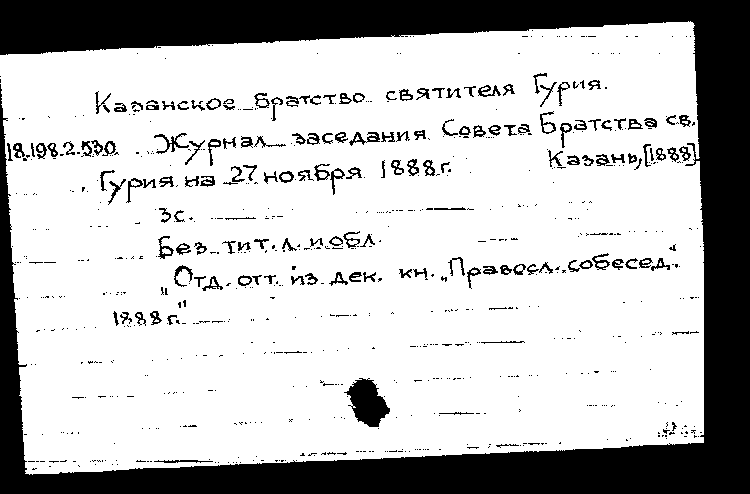 Казанское братство святителя Гурия.
18.198.2.530 Журнал заседания Совета Братства св.
Гурия на 27 ноября 1888 г. Казань, [1888]
3 с.
Без тит. л. и обл.
„Отд. отт. из дек. кн. „Правосл. собесед."
1888 г."